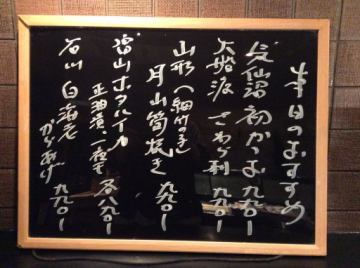 本日のおすすめ
気仙沼 初かつお 九九〇ー
大船渡 さわら刺 九九〇ー
山形(細竹の子)
月山筍焼き 九九〇ー
富山 ホタルイカ
正油漬、一夜干 各八九〇ー
石川 白海老
からあげ 九九〇ー